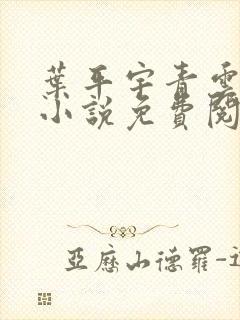 葉平宇青雲
小說免費閱
亞歷山德羅-